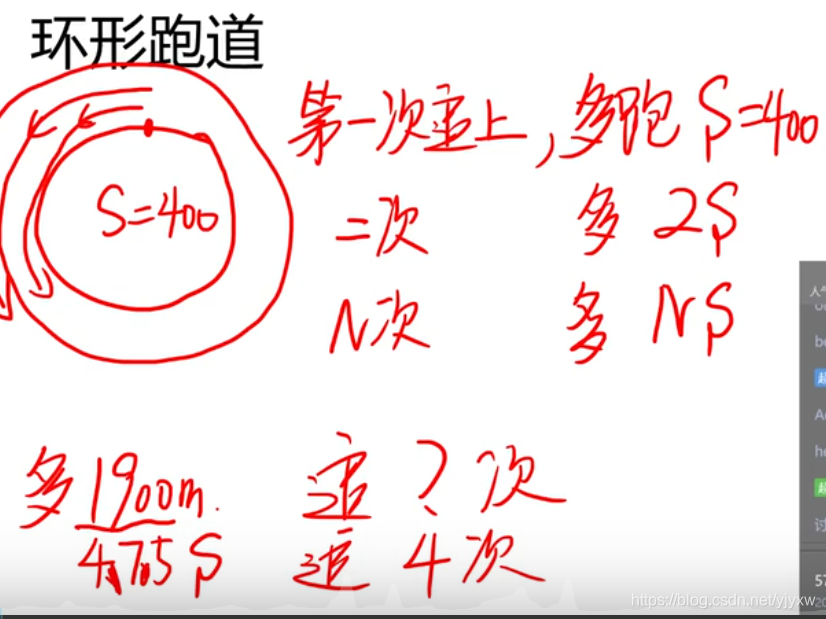 环形跑道
第一次追上，多跑 S=400
S=400
二次 多 2S
N次 多 NS
多1900m. 追 ? 次
4.75 S 追 4 次
人气
A
he
讨
57
https://blog.csdn.net/yjyxw